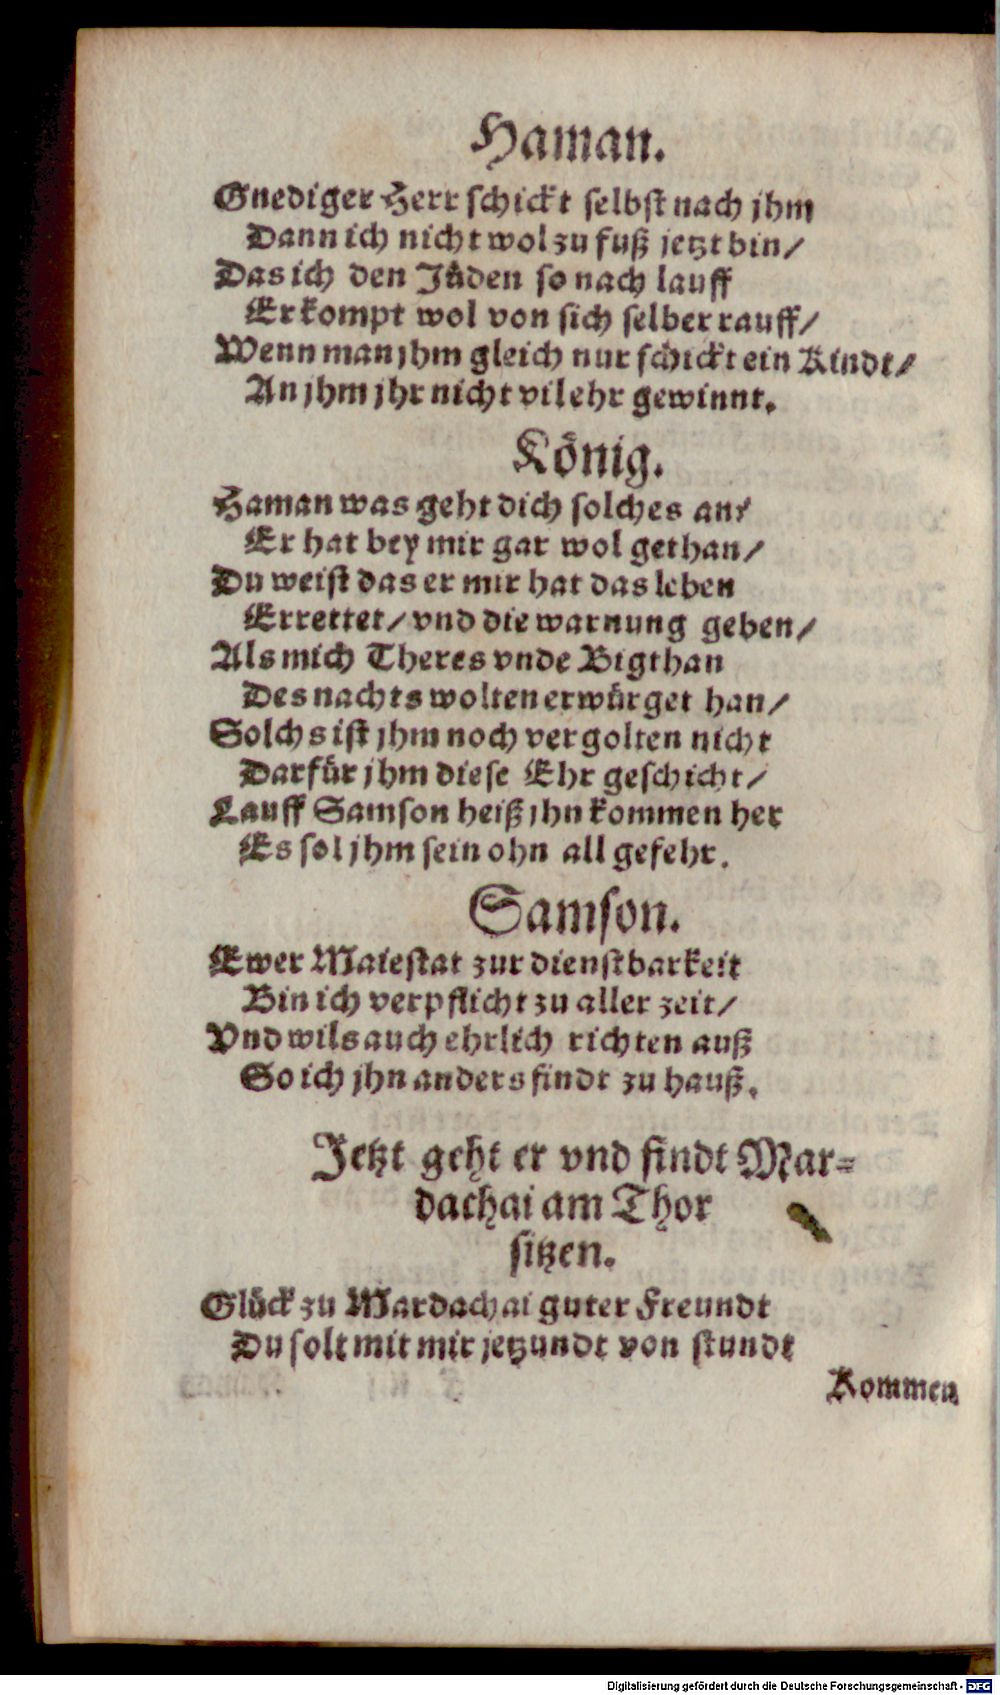 Haman.
Gnediger Herr schickt selbst nach jhm
Dann ich nicht wol zu fuß jetzt bin/
Das ich den Jüden so nach lauff
Er kompt wol von sich selber rauff/
Wenn man jhm gleich nur schickt ein Kindt/
An jhm jhr nicht vil ehr gewinnt.
König.
Haman was geht dich solches an/
Er hat bey mir gar wol gethan/
Du weist das er mir hat das leben
Errettet/ vnd die warnung geben/
Als mich Theres vnde Bigthan
Des nachts wolten erwürget han/
Solchs ist jhm noch vergolten nicht
Darfür jhm diese Ehr geschicht/
Lauff Samson heiß jhn kommen her
Es sol jhm sein ohn all gefehr.
Samson.
Ewer Maiestat zur dienstbarkeit
Bin ich verpflicht zu aller zeit/
Vnd wils auch ehrlich richten auß
So ich jhn anders findt zu hauß.
Jetzt geht er vnd findt Mar-
dachai am Thor
sitzen.
Glück zu Mardachai guter Freundt
Du solt mit mir jetzundt von stundt
Kommen
Digitalisierung gefördert durch die Deutsche Forschungsgemeinschaft - DFG